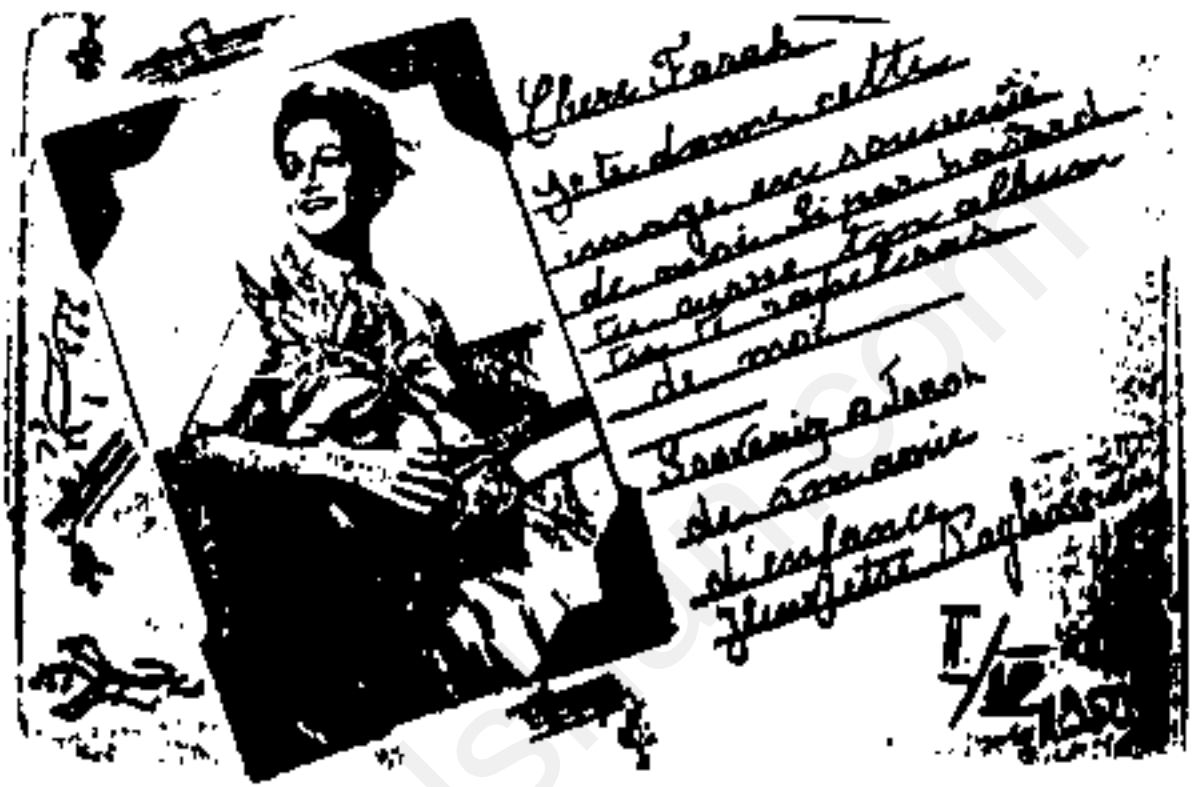 Chere Farah
Je te donne cette
image en souvenir
de moi. Si par hasard
tu ouvre ton album
tu te rapelleras
de moi
Souvenir a Farah
de son amie
d'enfance
I/12/1950